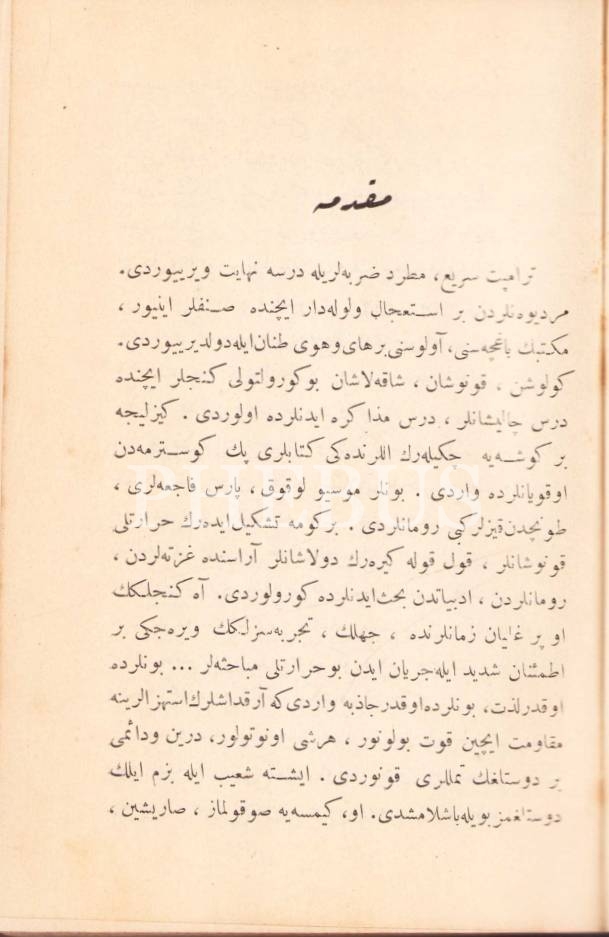 مقدمه
ترامپت سریع، مطرد ضربه‌لریله درسه نهایت ویرییوردی.
مردیوه‌نلردن بر استعجال ولوله‌دار ایچنده صنفلر اینیور ،
مکتبك باغچه‌سنی، آولوسنی بر های وهوی طنان ایله دولدیرییوردی.
کولوشن ، قونوشان ، شاقه‌لاشان بو کورولتولی کنجلر ایچنده
درس چالیشانلر ، درس مذاکره ایدنلرده اولوردی . کیزلیجه
بر کوشه‌یه چکیله‌رك اللرنده‌کی کتابلری پك کوسترمه‌دن
اوقویانلرده واردی . بونلر موسیو لوقوق ، پارس فاجعه‌لری ،
طونجدن قیزلر کبی رومانلردی . بر کومه تشکیل ایده‌رك حرارتلی
قونوشانلر ، قول قوله کیره‌رك دولاشانلر آراسنده غزته‌لردن ،
رومانلردن ، ادبیاتدن بحث ایدنلرده کورولوردی. آه کنجلکك
او پر غلیان زمانلرنده ، جهلك ، تجربه‌سزلکك ویره‌جکی بر
اطمئنان شدید ایله جریان ایدن بو حرارتلی مباحثه‌لر ... بونلرده
اوقدر لذت، بونلرده اوقدر جاذبه واردی که آرقداشلرك استهزالرینه
مقاومت ایچین قوت بولونور ، هرشی اونوتولور، درین ودائمی
بر دوستلغك تمللری قونوردی . ایشته شعیب ایله بزم ایلك
دوستلغمز بویله باشلامشدی. او، کیمسه‌یه صوقولماز ، صاریشین ،
PHEBUS